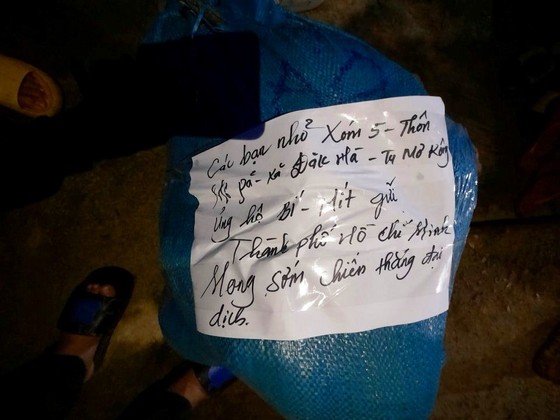 Các bạn nhỏ Xóm 5 - Thôn
Pá - Xã Đăk Hà - Tu Mơ Rông
Ủng hộ Bí - Mít gửi
Thành phố Hồ Chí Minh
Mong sớm chiến thắng đại
dịch.